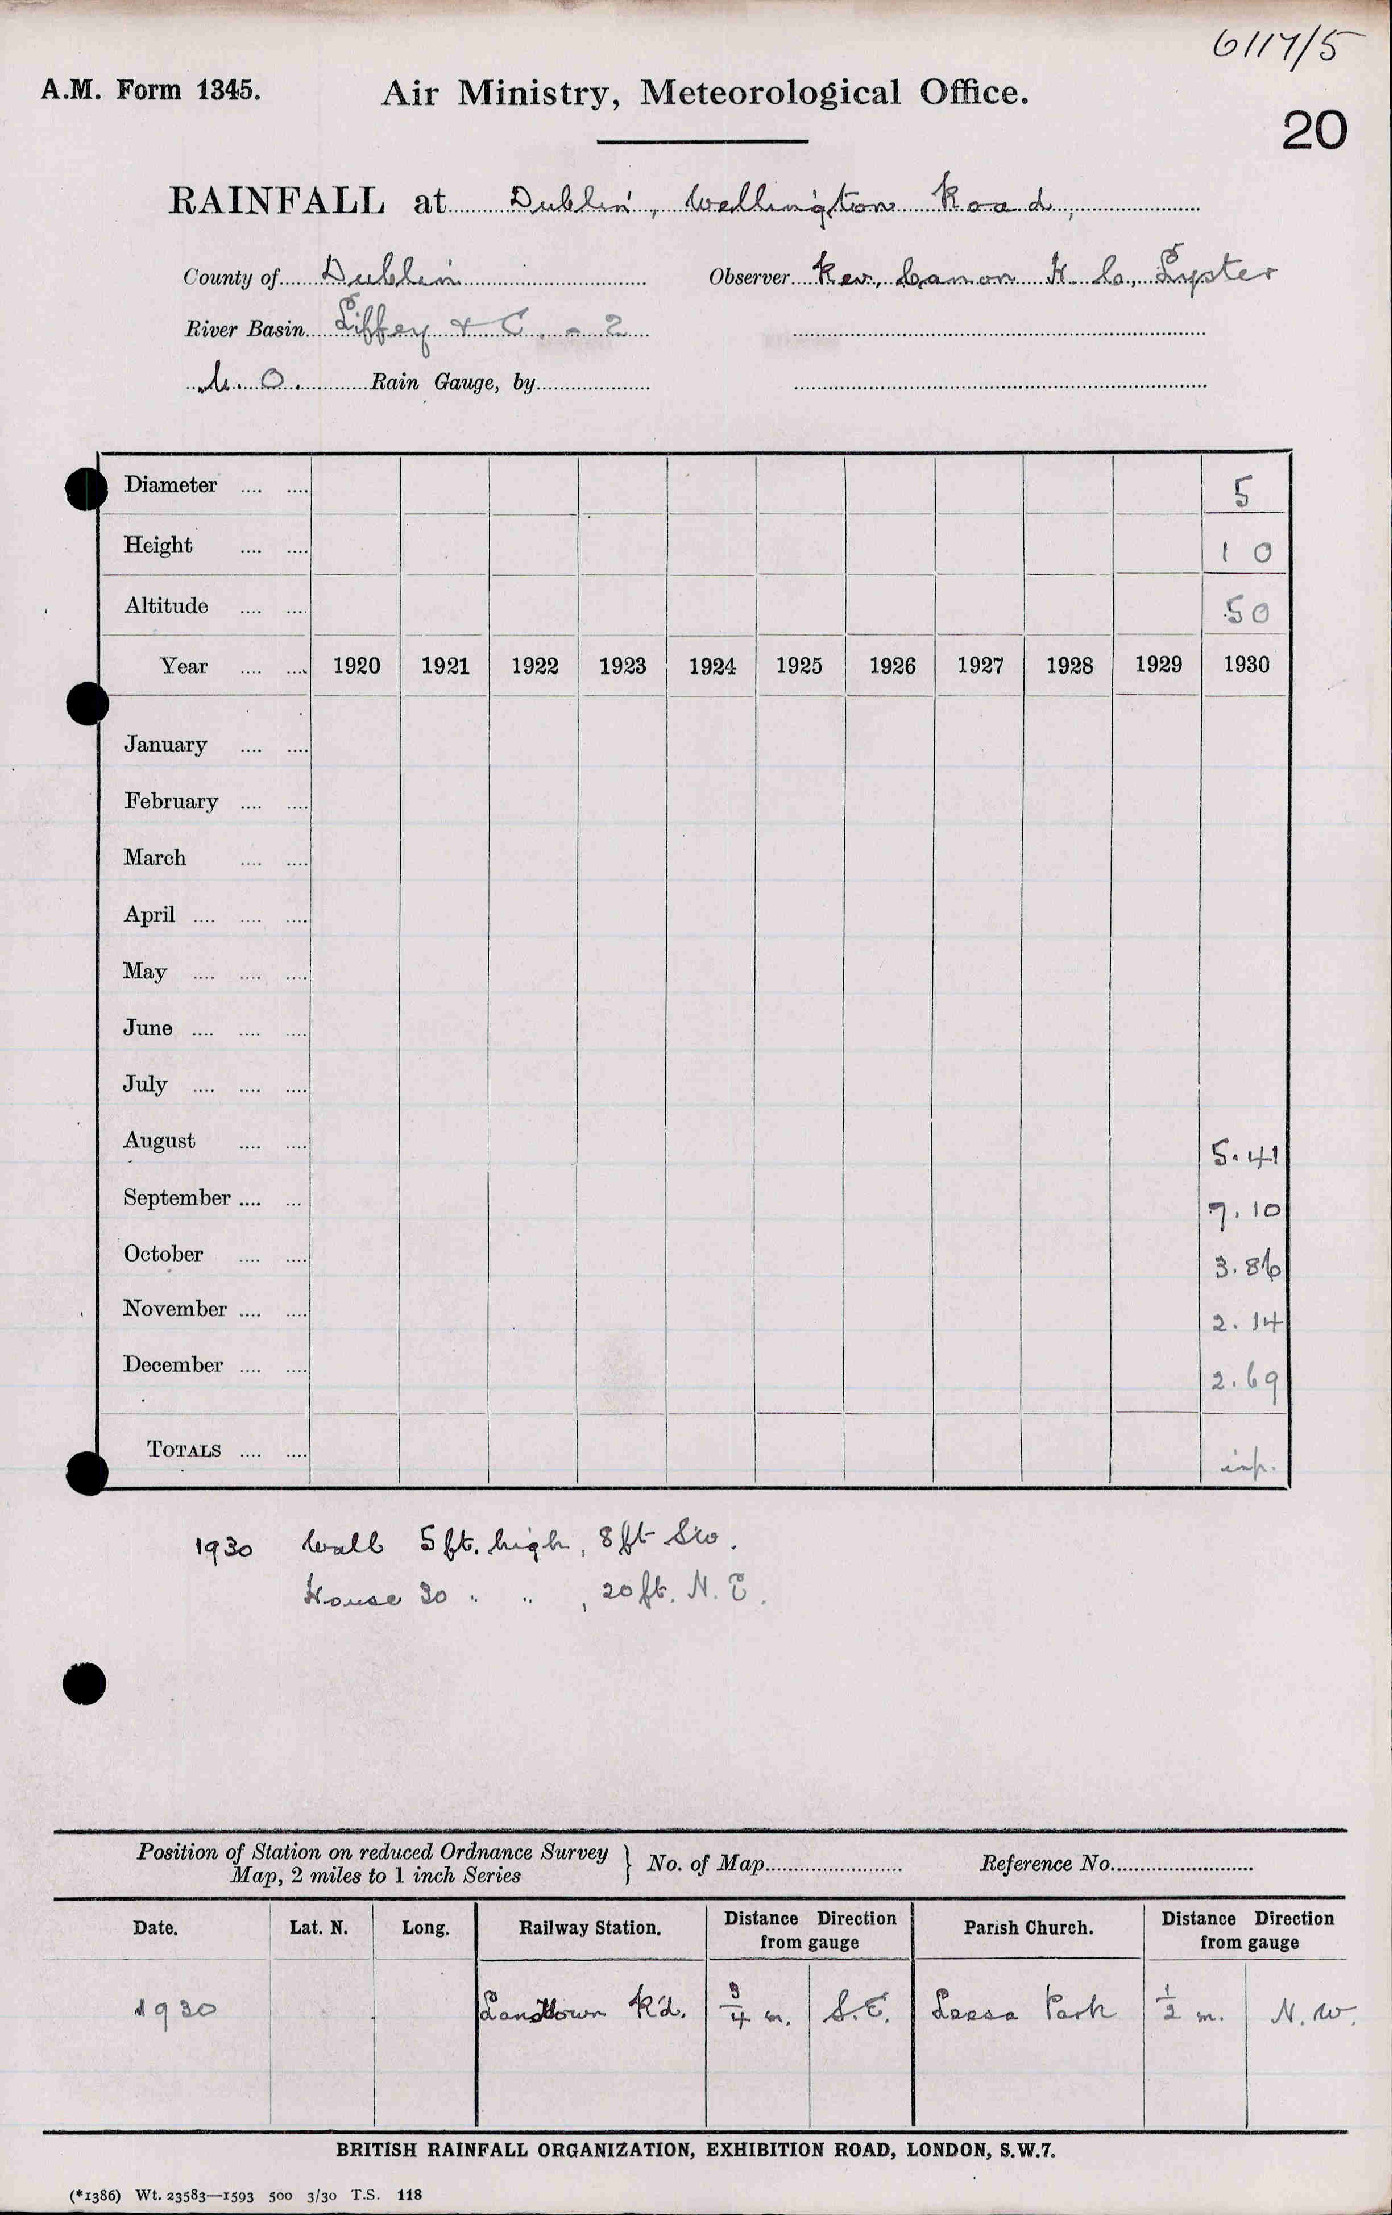 6117/5
A.M. Form 1345. Air Ministry, Meteorological Office.
20
RAINFALL at Dublin, Wellington Road,
County of Dublin Observer Rev. Canon H. C. Lyster
River Basin Liffey & C. - 2
M. O. Rain Gauge, by
Diameter 5
Height 1 0
Altitude 50
Year 1920 1921 1922 1923 1924 1925 1926 1927 1928 1929 1930
January
February
March
April
May
June
July
August 5.41
September 7.10
October 3.86
November 2.14
December 2.69
TOTALS inp.
1930 Wall 5 ft. high, 8 ft SW.
House 30 " " , 20 ft. N.E.
Position of Station on reduced Ordnance Survey
Map, 2 miles to 1 inch Series } No. of Map Reference No.
Date. Lat. N. Long. Railway Station. Distance Direction from gauge Parish Church. Distance Direction from gauge
1930 Lansdown Rd. 3/4 m. S.E. Leesa Park 1/2 m. N.W.
BRITISH RAINFALL ORGANIZATION, EXHIBITION ROAD, LONDON, S.W.7.
(*1386) Wt. 23583—1593 500 3/30 T.S. 118